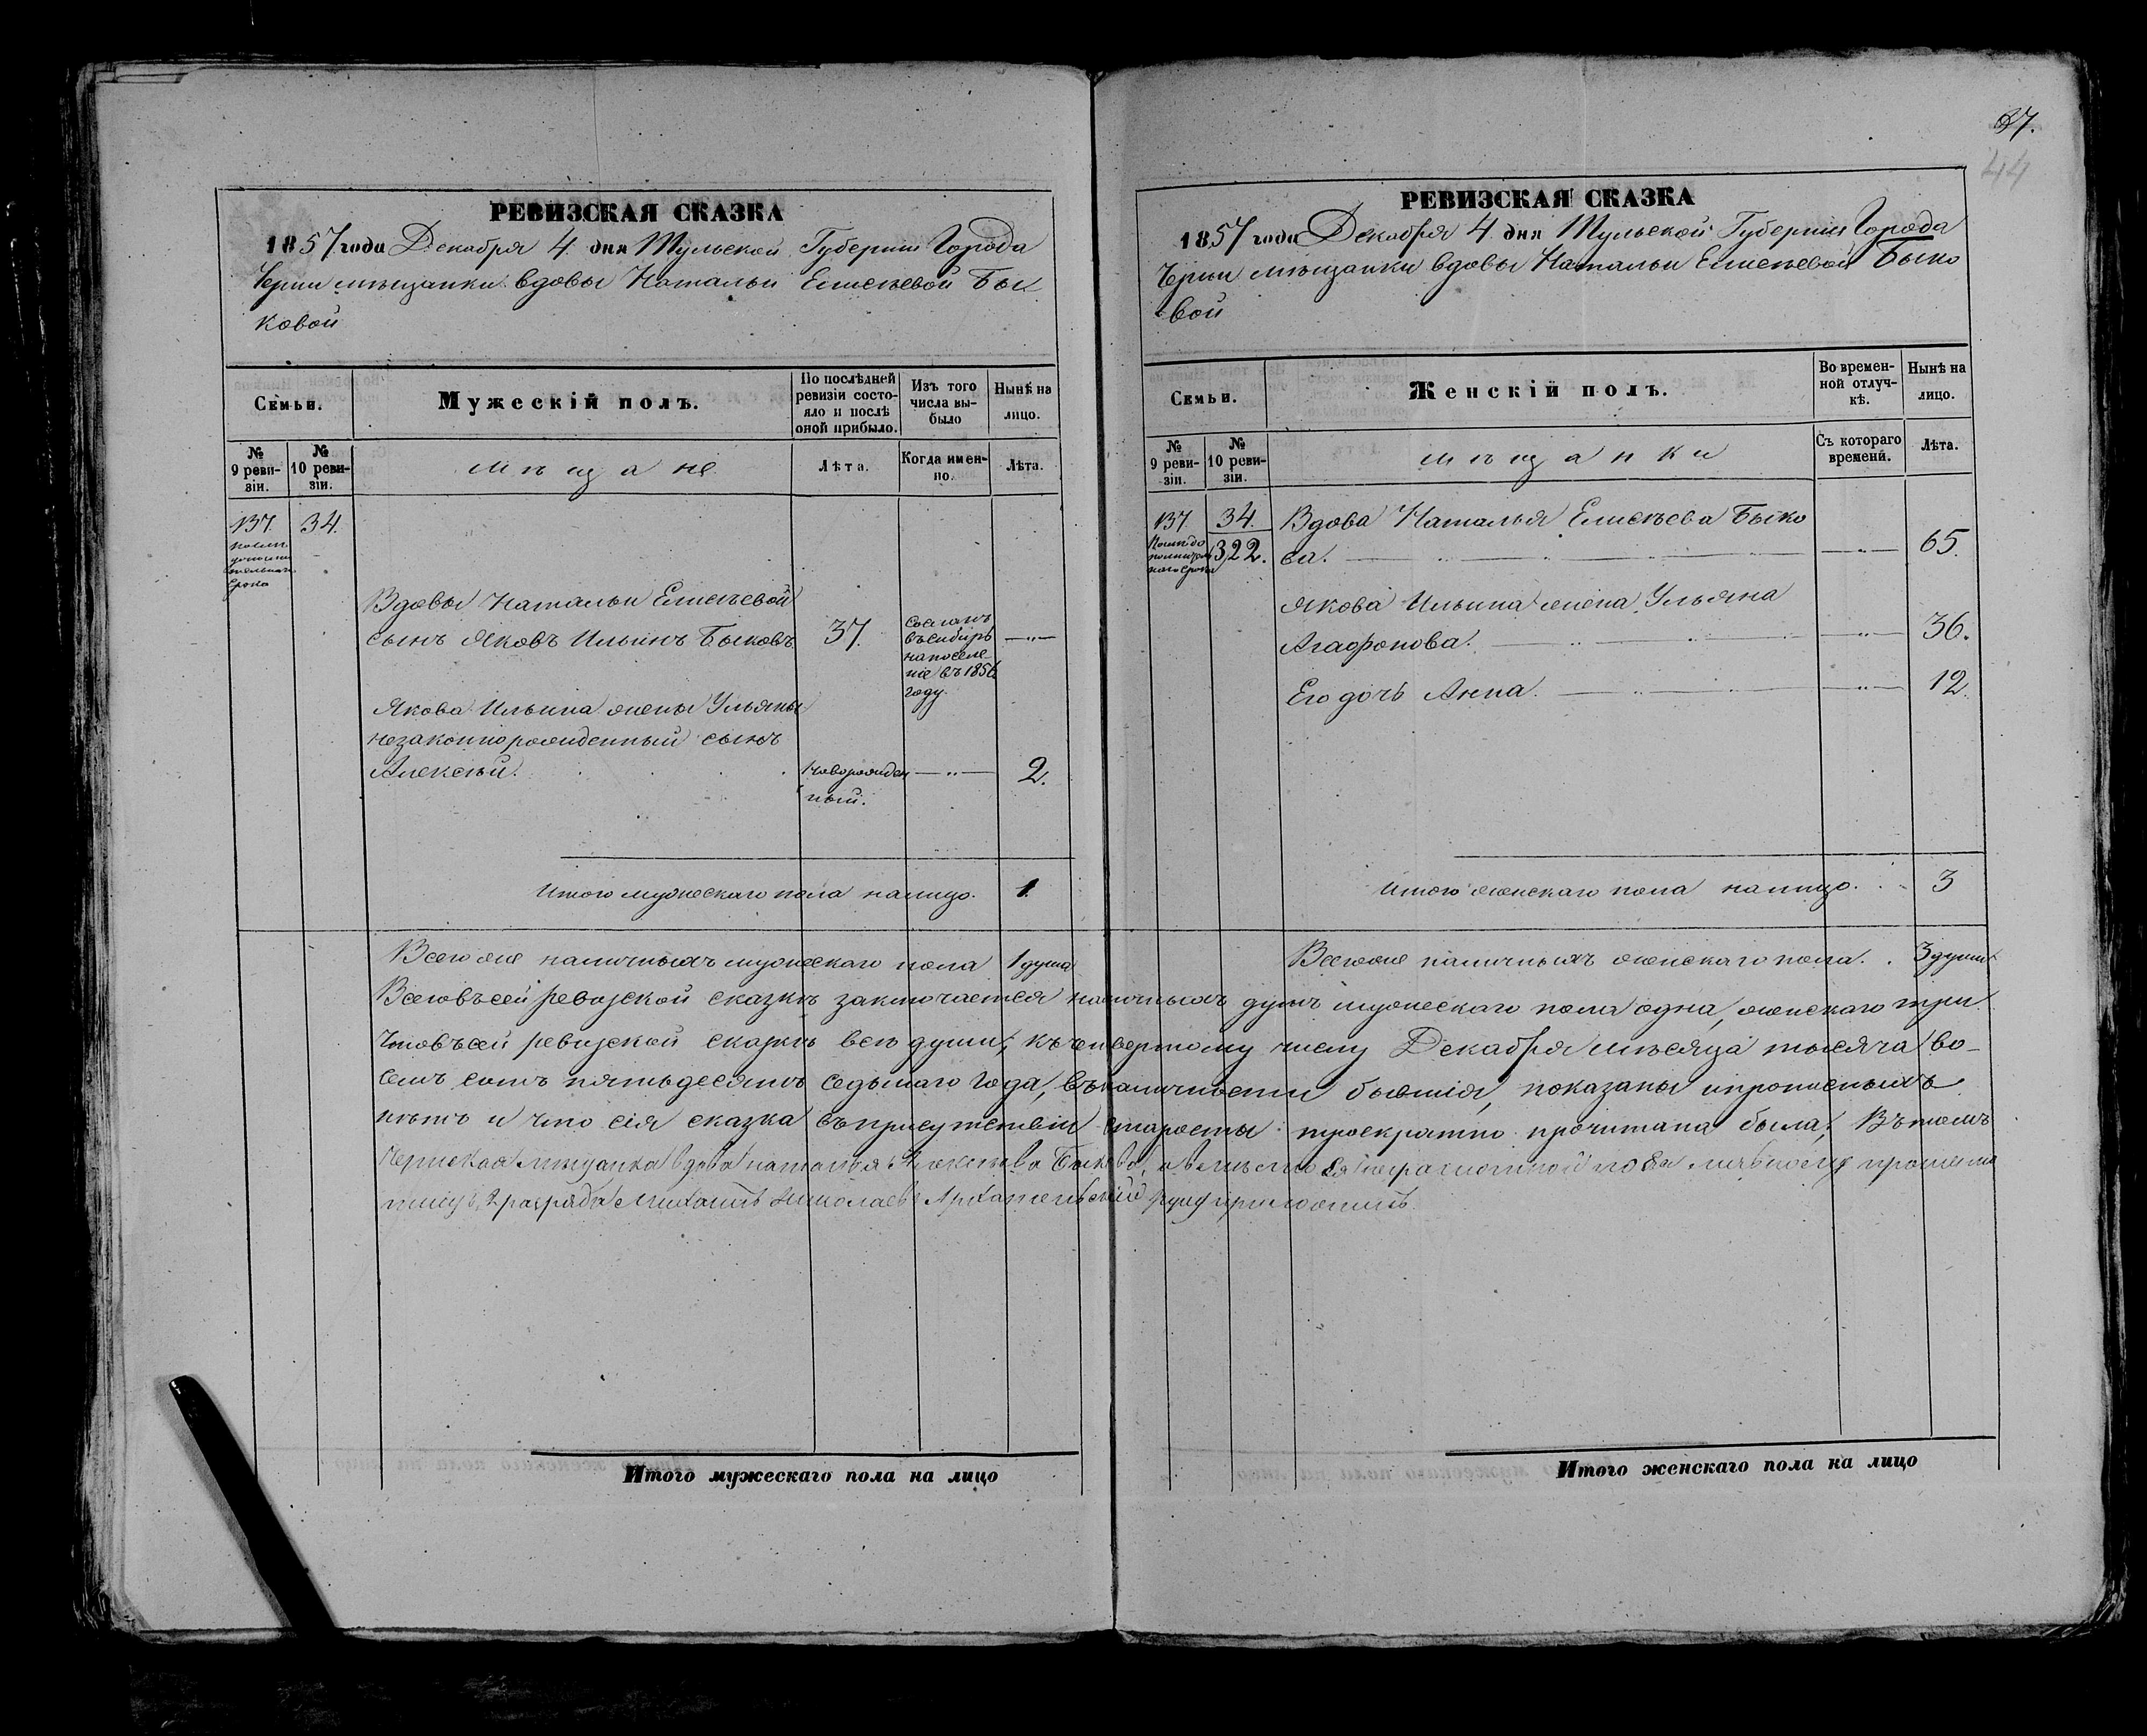 37.
44
РЕВИЗСКАЯ СКАЗКА
1857 года Декабря 4 дня Тульской Губерніи Города
Черни мѣщанки вдовы Натальи Елисѣевой Бы
ковой
Семьи.
Мужескій полъ.
По послѣдней ревизіи состояло и послѣ оной прибыло.
Изъ того числа выбыло
Ныне на лицо.
№ 9 ревизіи.
№ 10 ревизіи.
мѣщане
Лѣта.
Когда именно.
Лѣта.
137.
34.
Вдовы Натальи Елисѣевой
сынъ Яковъ Ильинъ Быковъ
37.
сосланъ
въ сибирь
на поселе
ніе въ 1856
году.
—„—
Якова Ильина жены Ульяны
незаконнорожденный сынъ
Алексѣй.
новорожден
ный.
—„—
2.
Итого мужескаго пола налицо.
1.
Всего же наличныхъ мужескаго пола
1 душа
РЕВИЗСКАЯ СКАЗКА
1857 года Декабря 4 дня Тульской Губерніи Города
Черни мѣщанки вдовы Натальи Елисѣевой Быко
вой
Семьи.
Женскій полъ.
Во временной отлучкѣ.
Нынѣ на лицо.
№ 9 ревизіи.
№ 10 ревизіи.
мѣщанки
Съ котораго времени.
Лѣта.
137.
34.
322.
Вдова Наталья Елисѣева Быко
ва.
—„—
65.
Якова Ильина жена Ульяна
Агафонова.
—„—
36.
Его дочь Анна.
—„—
12.
Итого женскаго пола налицо.
3
Всего же наличныхъ женскаго пола.
3 души.
Всего въ сей ревизской сказкѣ заключается наличныхъ душъ мужескаго пола одна, женскаго три.
Что въ сей ревизской сказкѣ всѣ души, къ четвертому числу Декабря мѣсяца тысяча во-
семь сотъ пятьдесятъ седьмаго года, въ наличности бывшія, показаны и прописныхъ
нѣтъ и что сія сказка въ присутствіи старосты троекратно прочитана была, Въ томъ
Чернская мѣщанка вдова Наталья Алексѣева Быкова, а вмѣсто ея неграмотной по ея личному прошенію
писецъ 2 разряда Михаилъ Николаевъ Архангельскій руку приложилъ.
Итого мужескаго пола на лицо
Итого женскаго пола на лицо